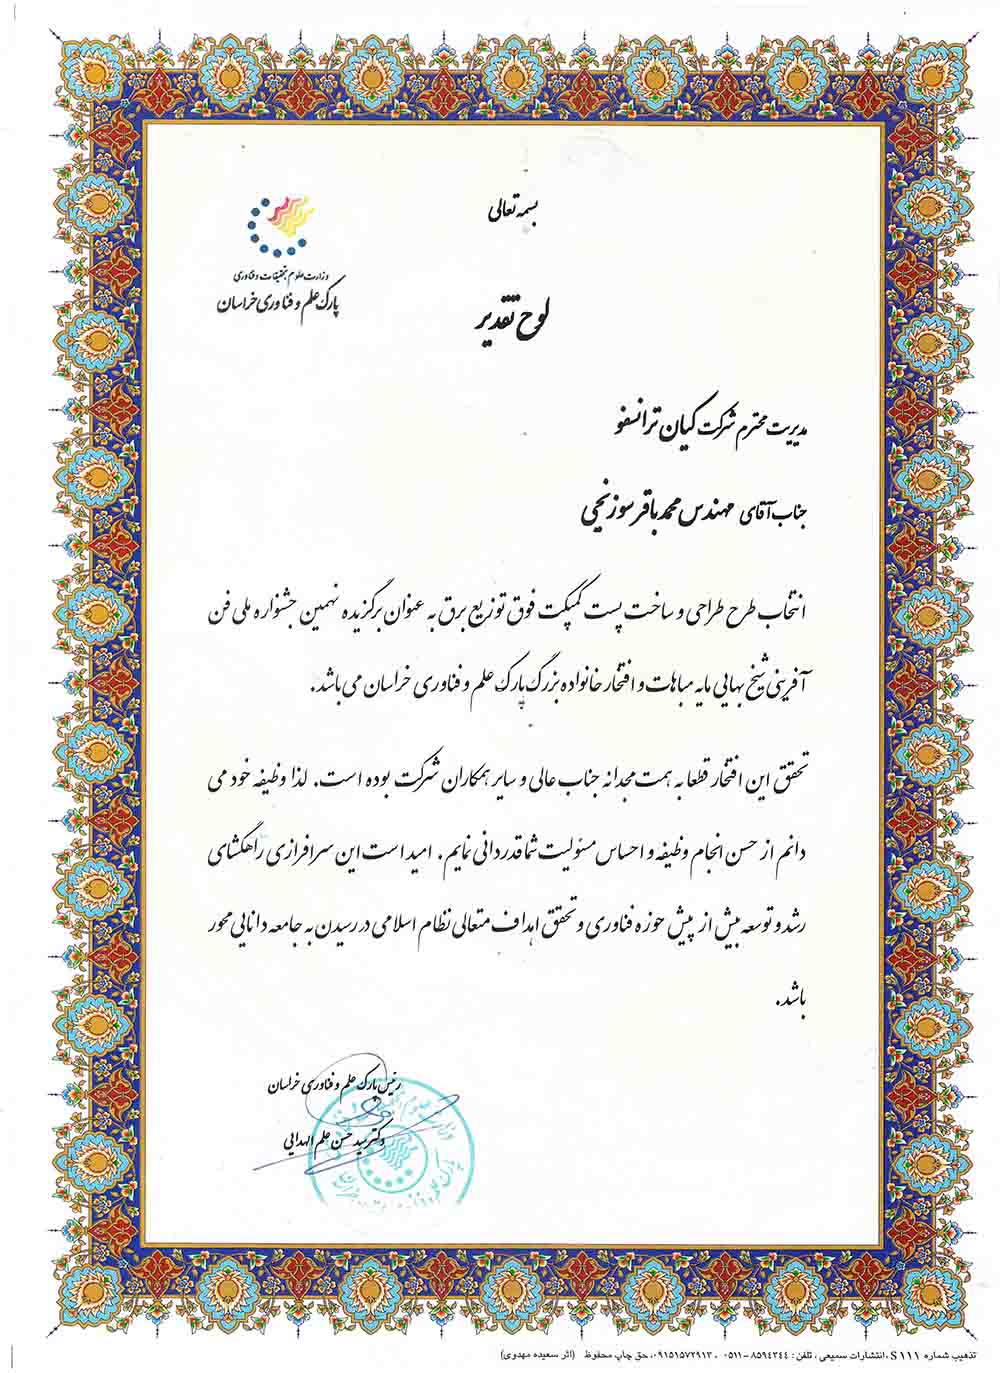 بسمه تعالی
وزارت علوم تحقیقات و فناوری
پارک علم و فناوری خراسان
لوح تقدیر
مدیریت محترم شرکت کیان ترانسفو
جناب آقای مهندس محمد باقر سوزنچی
انتخاب طرح طراحی و ساخت پست کمپکت فوق توزیع برق به عنوان برگزیده نهمین جشنواره ملی فن
آفرینی شیخ بهایی مایه مباهات و افتخار خانواده بزرگ پارک علم و فناوری خراسان می باشد.
تحقق این افتخار قطعا به همت مجدانه جناب عالی و سایر همکاران شرکت بوده است. لذا وظیفه خود می
دانم از حسن انجام وظیفه و احساس مسئولیت شما قدردانی نمایم. امید است این سرافرازی راهگشای
رشد و توسعه بیش از پیش حوزه فناوری و تحقق اهداف متعالی نظام اسلامی در رسیدن به جامعه دانایی محور
باشد.
رئیس پارک علم و فناوری خراسان
دکتر سید حسن علم الهدایی
تذهیب شماره S۱۱۱، انتشارات سمیعی، تلفن: ۸۵۹۴۳۴۴-۰۵۱۱ ، ۰۹۱۵۱۵۷۲۹۱۳، حق چاپ محفوظ (اثر سعیده مهدوی)